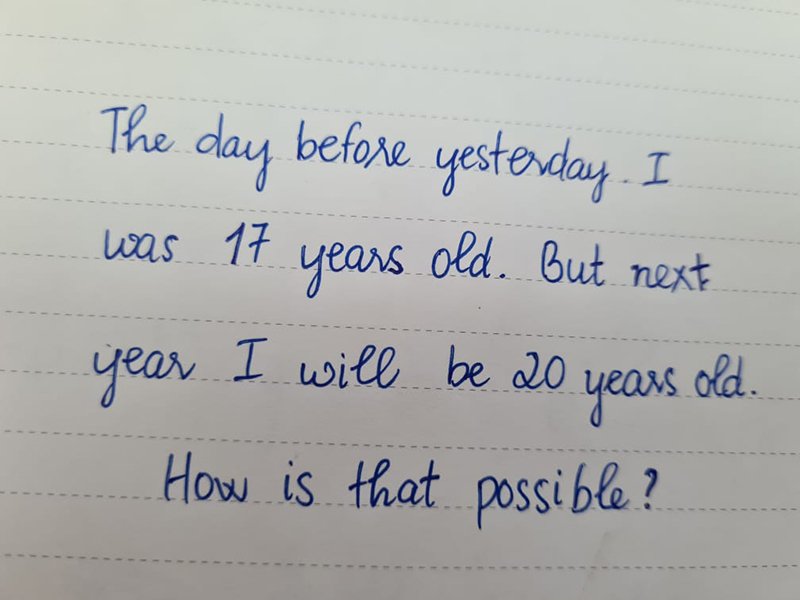 The day before yesterday I
was 17 years old. But next
year I will be 20 years old.
How is that possible?